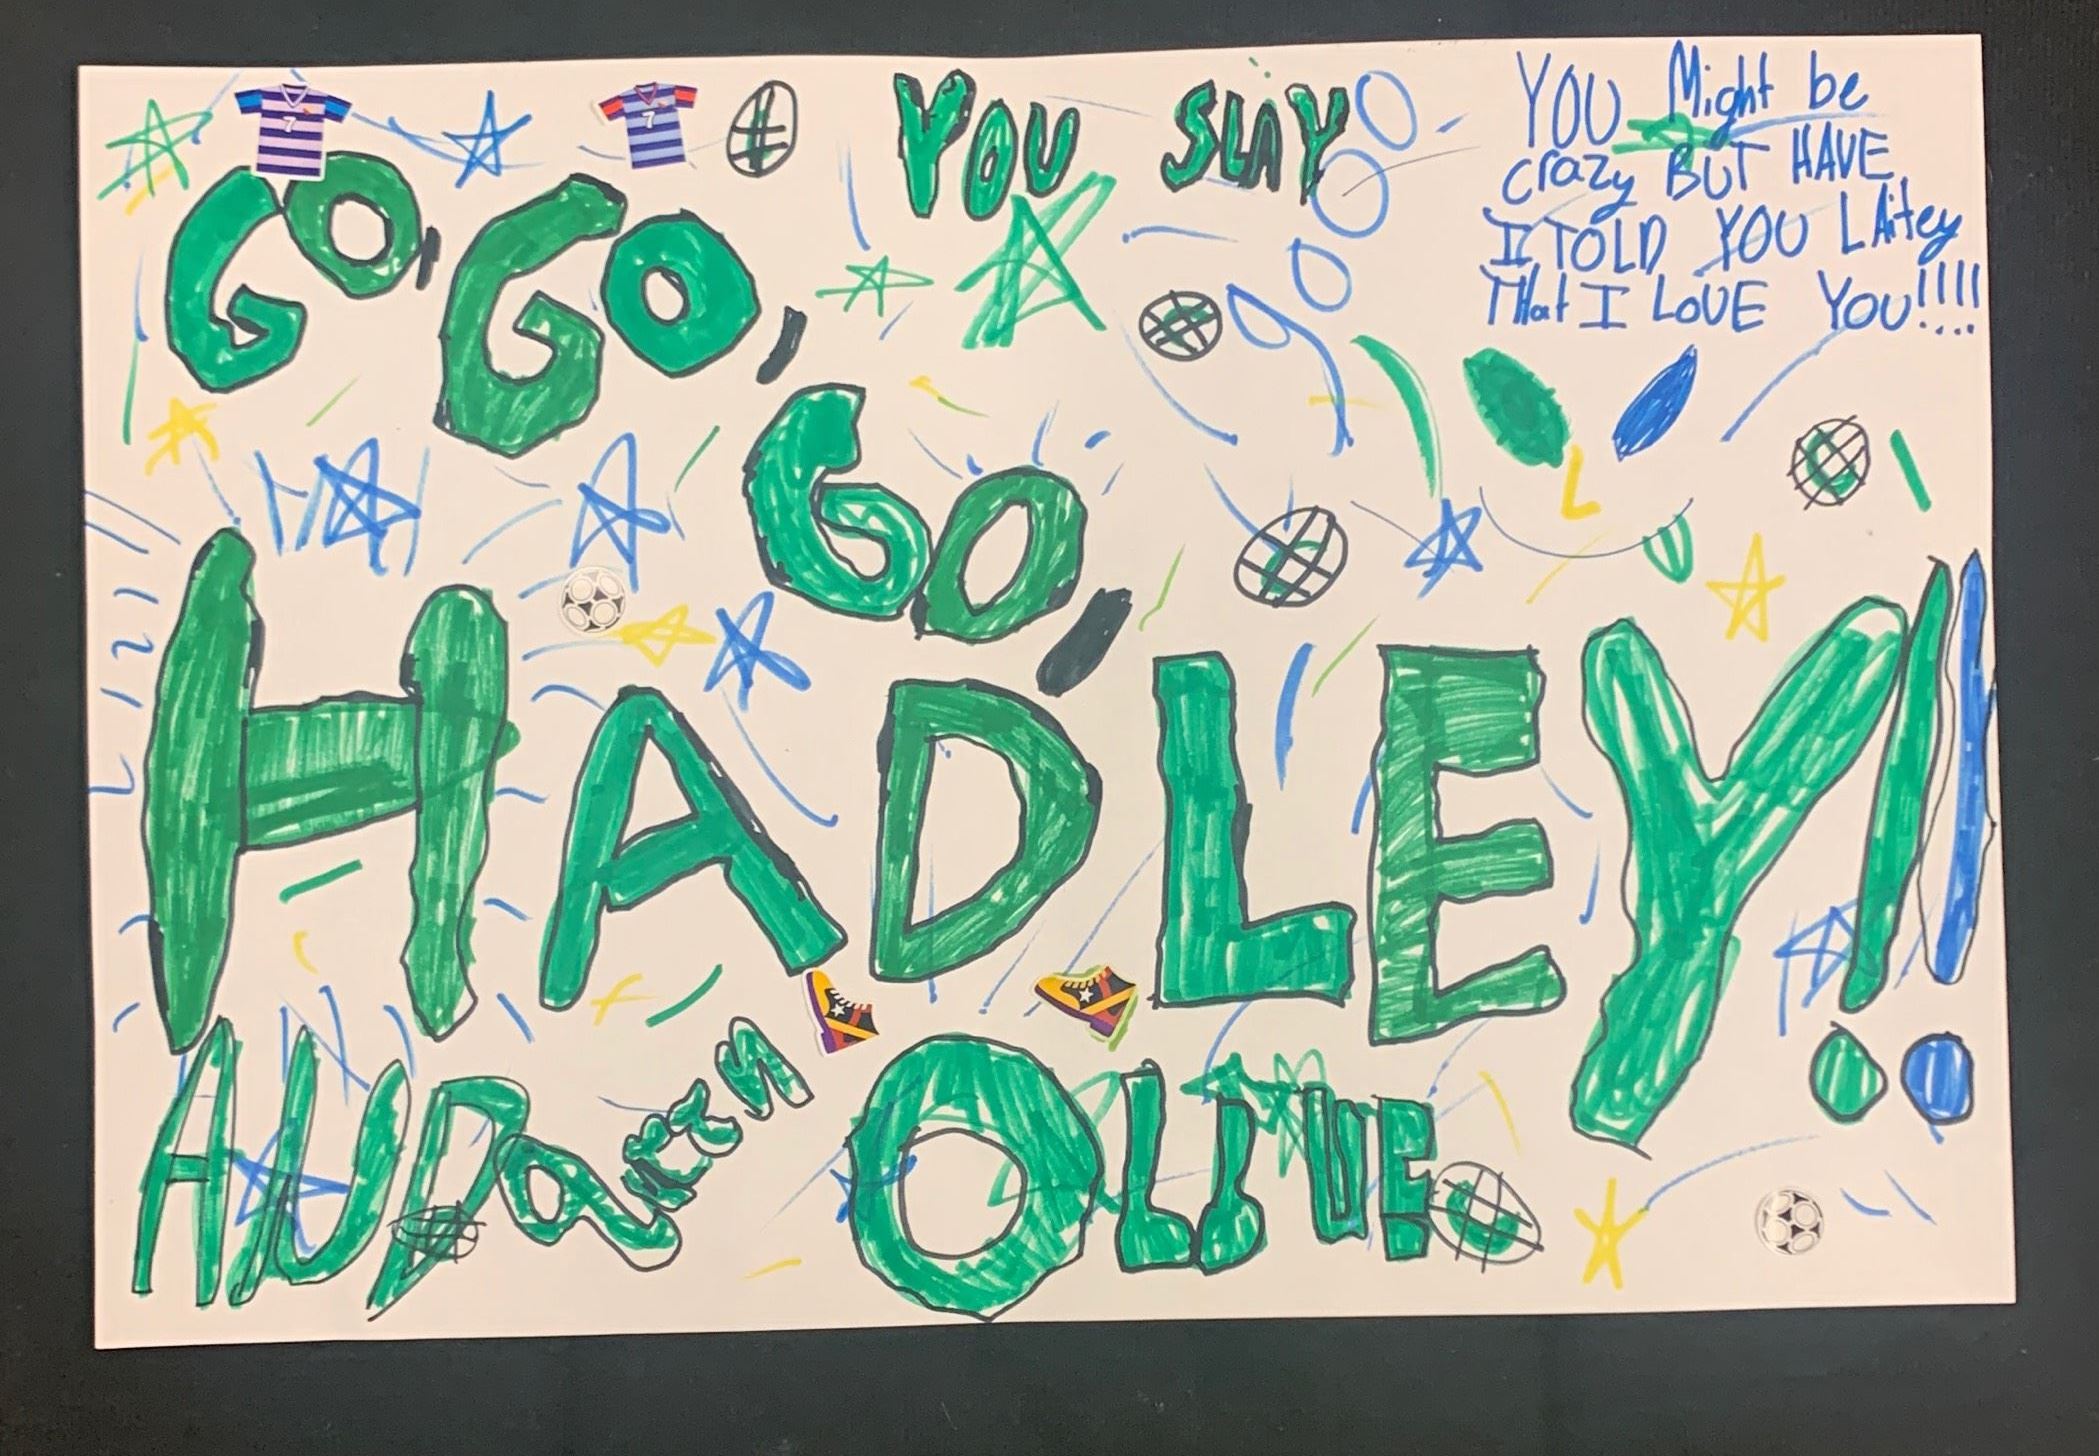 GO, GO,
7
7
YOU SLAY
gooo
YOU Might be
crazy BUT HAVE
I TOLD YOU LAitey
That I LOVE YOU!!!!
GO,
HADLEY!!
OLIVE